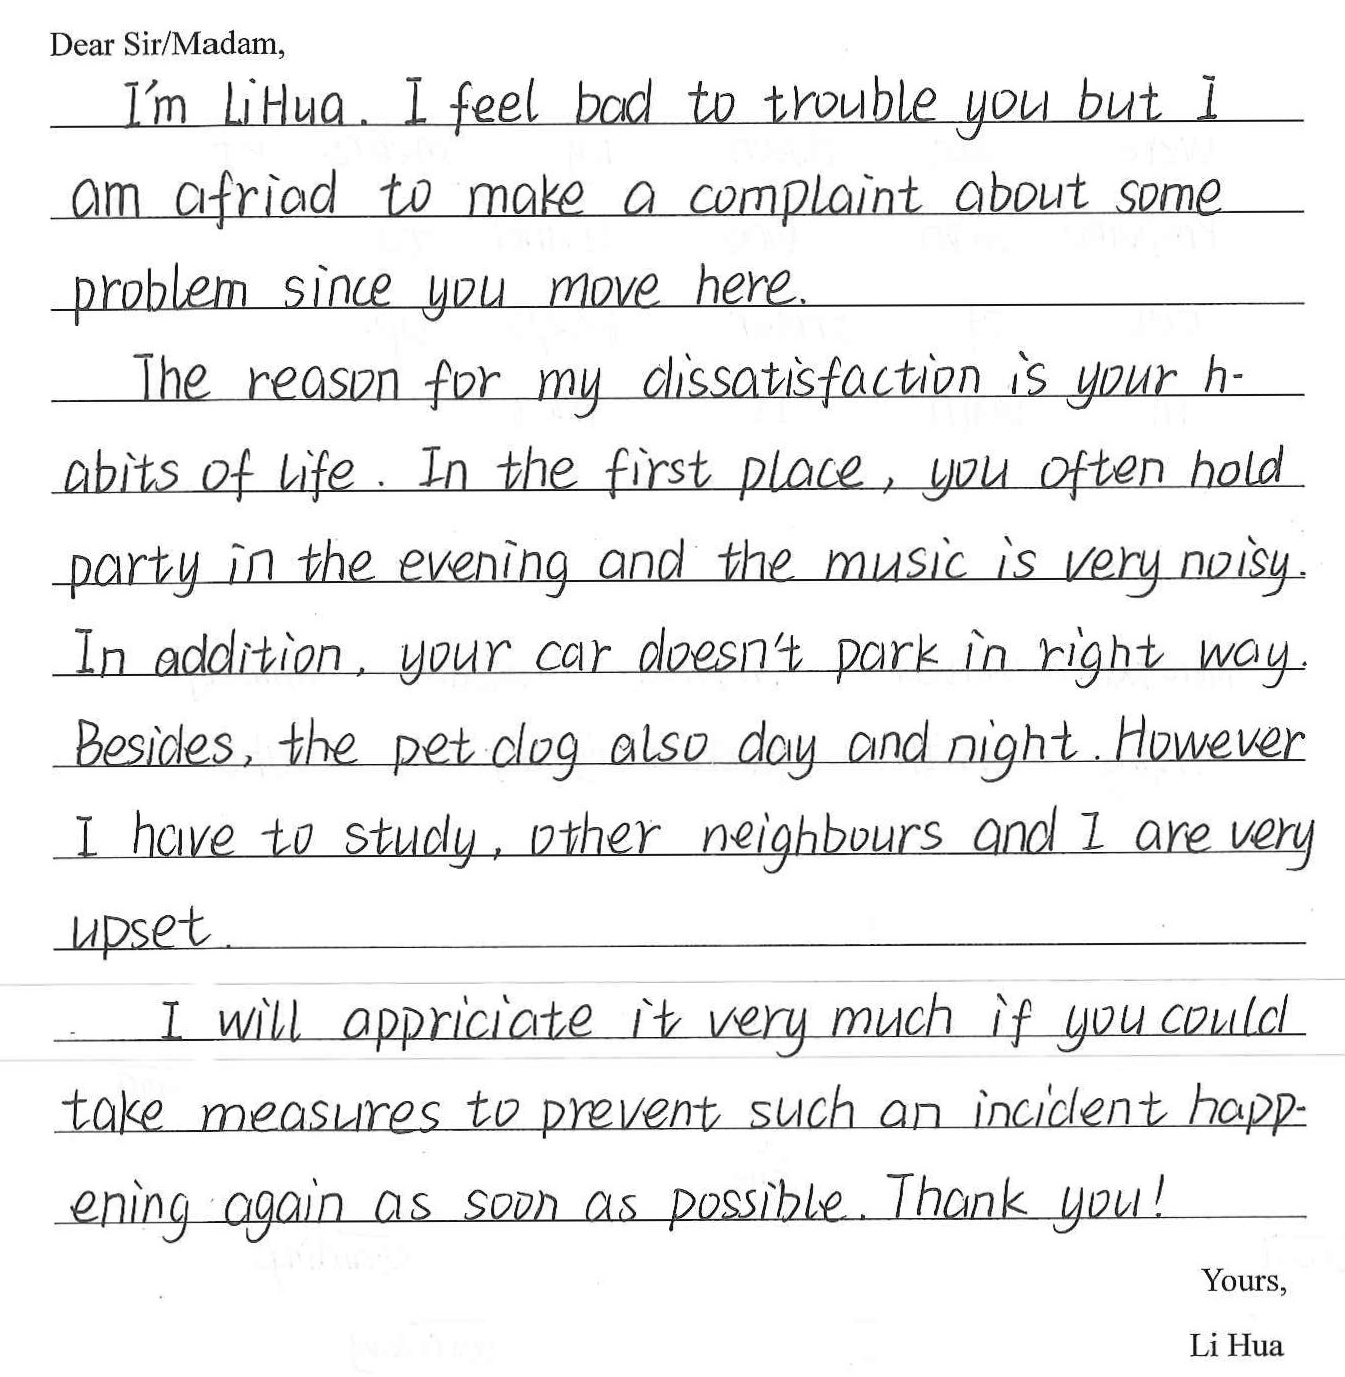 Dear Sir/Madam,
I'm LiHua. I feel bad to trouble you but I
am afriad to make a complaint about some
problem since you move here.
The reason for my dissatisfaction is your h-
abits of life. In the first place, you often hold
party in the evening and the music is very noisy.
In addition, your car doesn't park in right way.
Besides, the pet dog also day and night. However
I have to study, other neighbours and I are very
upset.
I will appriciate it very much if you could
take measures to prevent such an incident happ-
ening again as soon as possible. Thank you!
Yours,
Li Hua